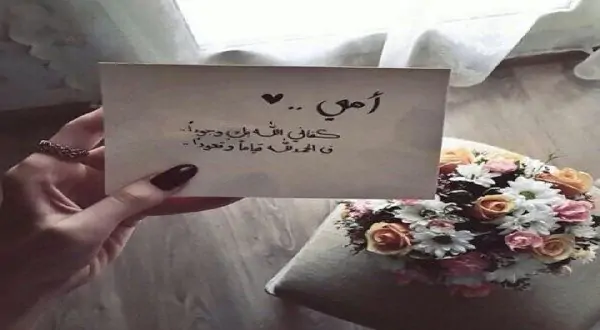 أمي .. ♥
كفاني الله بكِ وجوداً..
فـ الحمدلله قياماً وقعوداً..